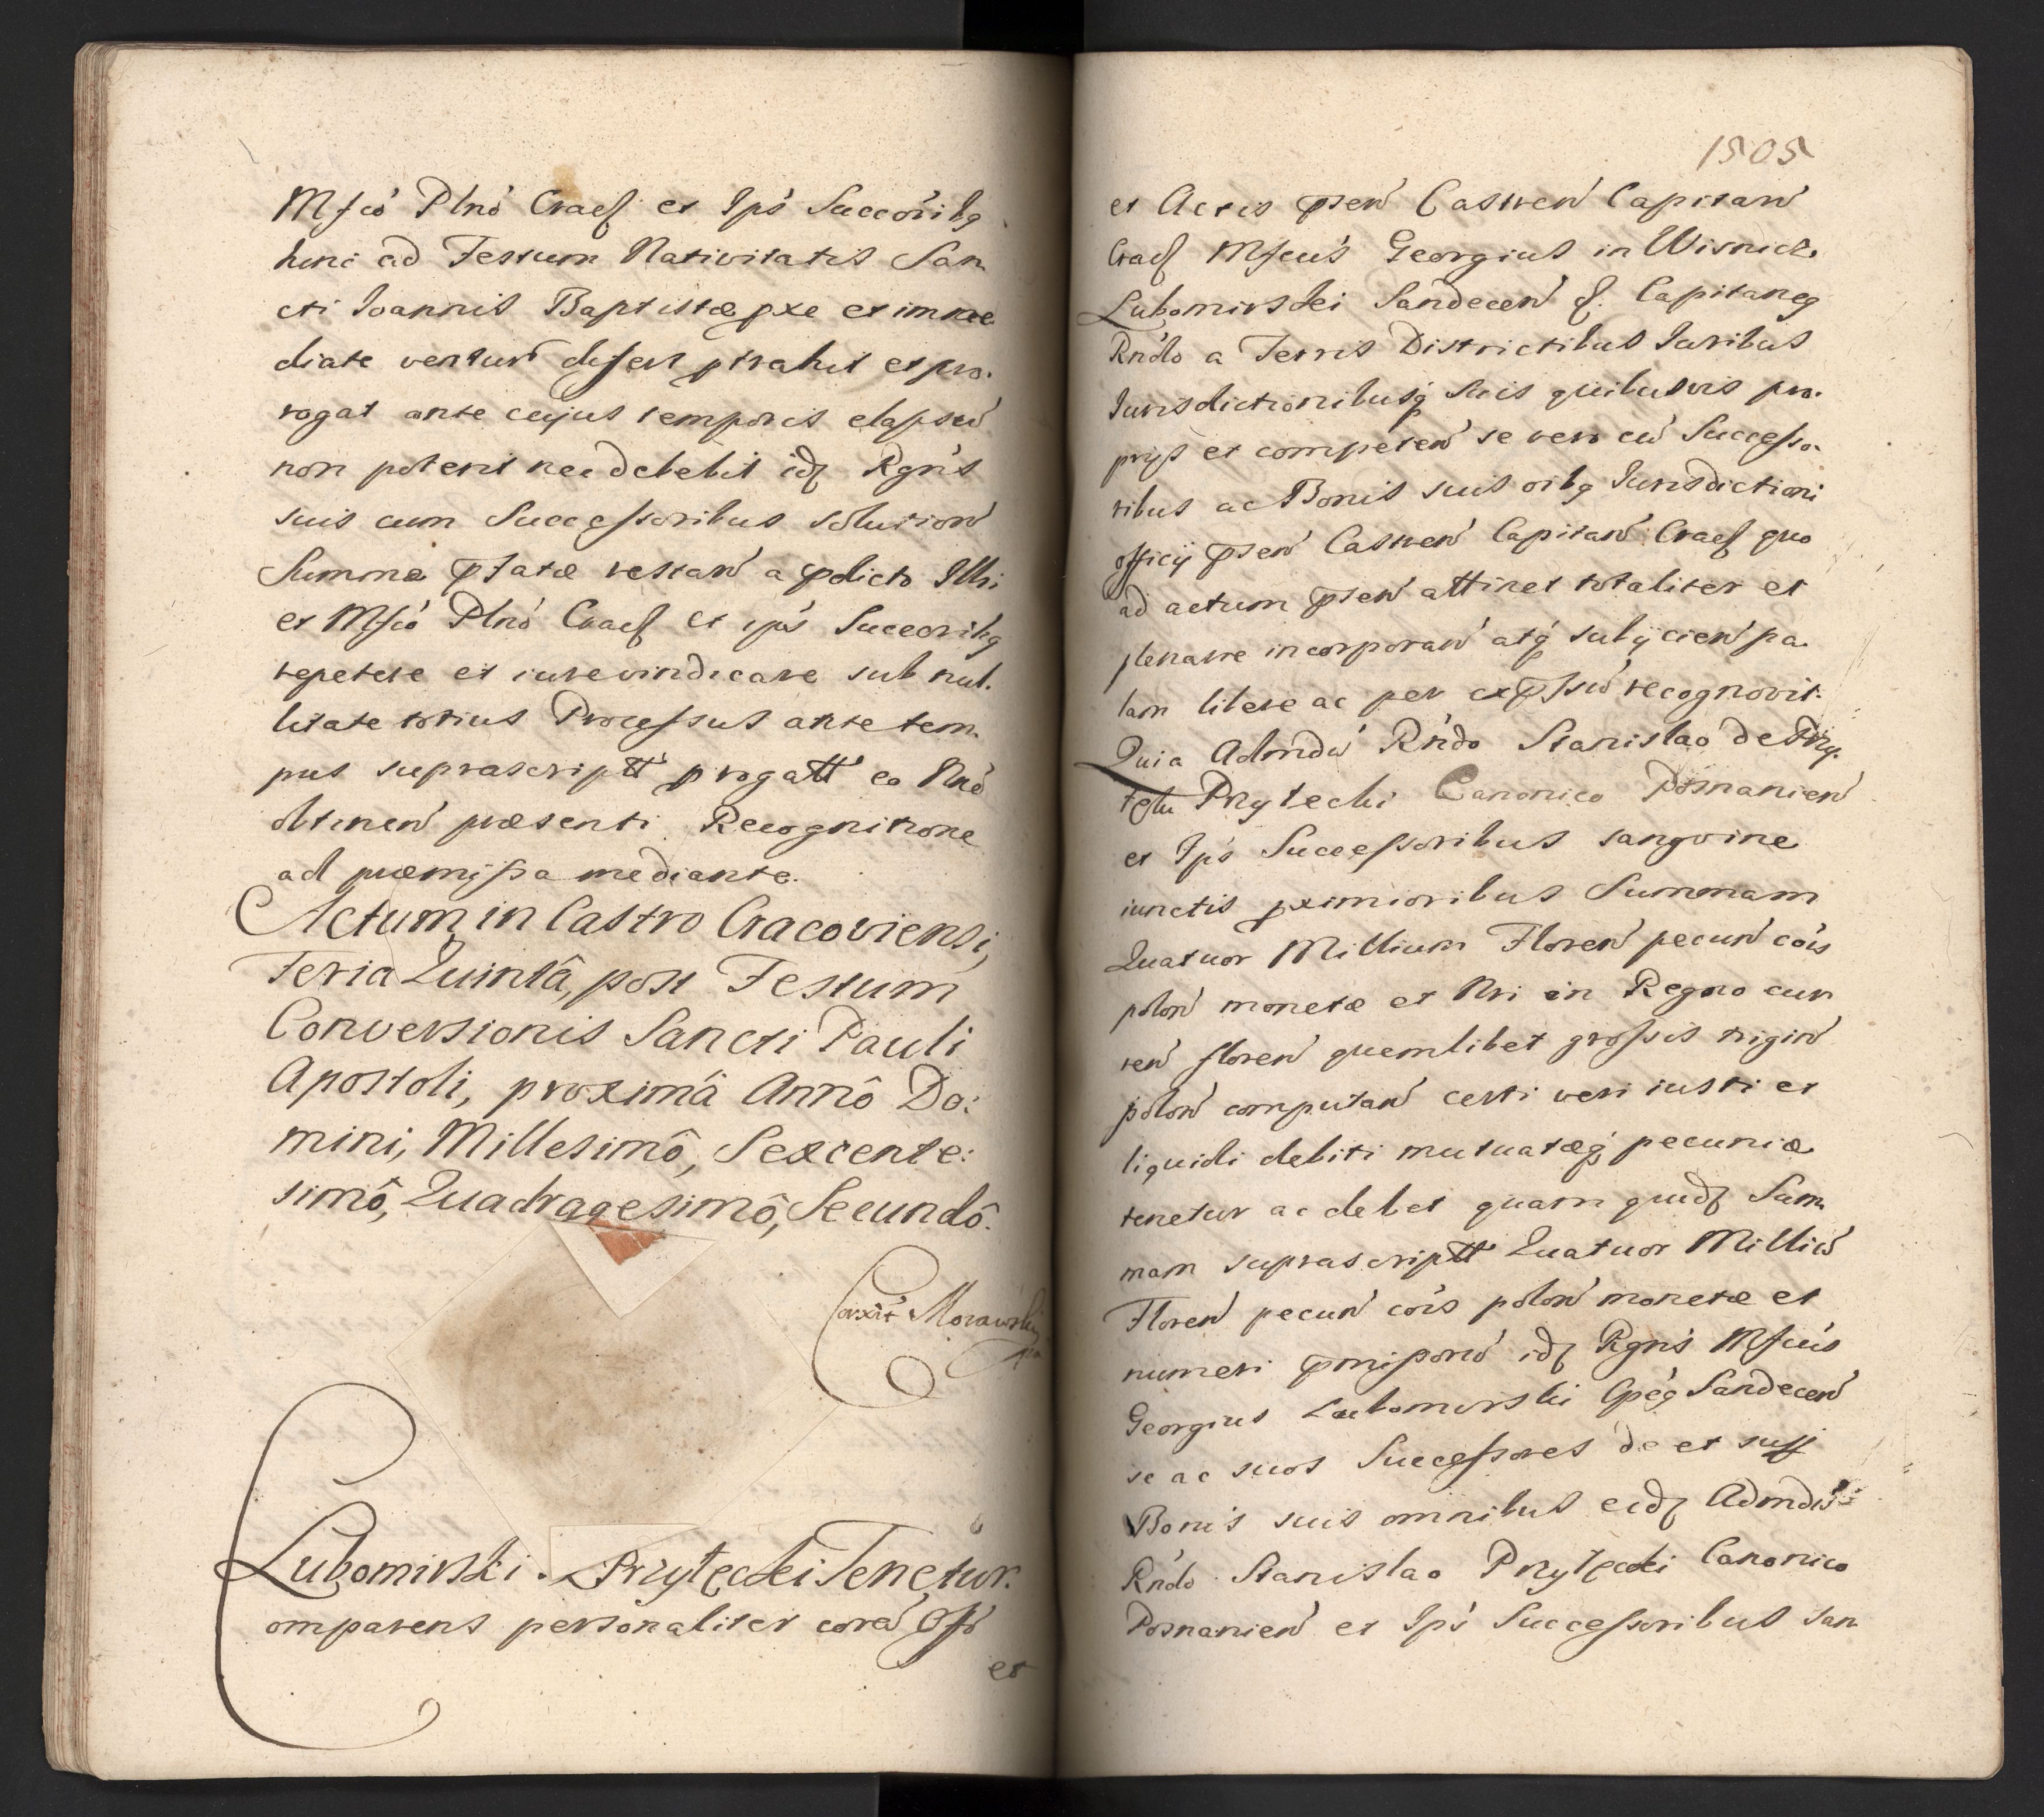 Mfcó Plnó Cracꝭ et Ips Succóribꝗ
hinc ad Festum Nativitatis San
cti Ioannis Baptistæ pxe et imme
diate ventur̃ differt ptrahit et pro.
rogat ante cujus temporis elapsũ
non poterit nec debebit idꝫ Rgńs
suis cum Successoribus solution̄
Summæ pſatæ restan̄ a pdicto Illri
et Mfcó Plnó Cracꝭ et ips Succoribꝗ
repetere et iure vindicare sub nul.
litate totius Processus ante tem.
pus suprascriptt progatt eo Nnó
obtinen̄ præsenti Recognitione
ad præmissa mediante.
Actum in Castro Cracoviensi,
Feria Quintâ, post Festum
Conversionis Sancti Pauli
Apostoli, proximâ Annô Do:
mini, Millesimô, Sexcente:
simô, Quadragesimô, Secundô.
Morawski
Lubomirski Przytęcki Tenetur.
Comparens personaliter corã Offó
et
1505
et Actis psen̄ Castren̄ Capitan̄
Cracꝭ Mfcus Georgius in Wisnicz
Lubomirski Sandecen̄ ꝭ. Capitaneꝗ
Rńdo a Terris Districtibus Iuribus
Iurisdictionibusꝗ suis quibusvis pro.
prijs et competen̄ se vero cũ Successo.
ribus ac Bonis suis oibꝗ Iurisdictioni
officij psen̄ Castren̄ Capitan̄ Cracꝭ quo
ad actum psen̄ attinet totaliter et
plenarie incorporan̄ atꝗ subijcien̄ pa.
lam libere ac per expssũ recognovit.
Quia Admdũ Rńdo Stanislao de Przy.
tęki Przytecki Canonico Posnanien̄
et Ips Successoribus sangvine
iunctis pximioribus Summam
Quatuor Millium Floren̄ pecun̄ cóis
polon̄ monetæ et Nri in Regno cur
ren̄ floren̄ quemlibet grossis trigin̄
polon̄ computan̄ certi veri iusti et
liquidi debiti mutuatæꝗ pecuniæ
tenetur ac debet quam quidꝫ Sum
mam suprascriptt Quatuor Milliũ
Floren̄ pecun̄ cóis polon̄ monetæ et
numeri pmissorũ idꝫ Rgńs Mfcus
Georgius Lubomirski Cpéꝗ Sandecen̄
se ac suos Successores de et supꝭ
Bonis suis omnibus eidꝫ Admdũ
Rńdo Stanislao Przytęcki Canonico
Posnanien̄ et Ips Successoribus san